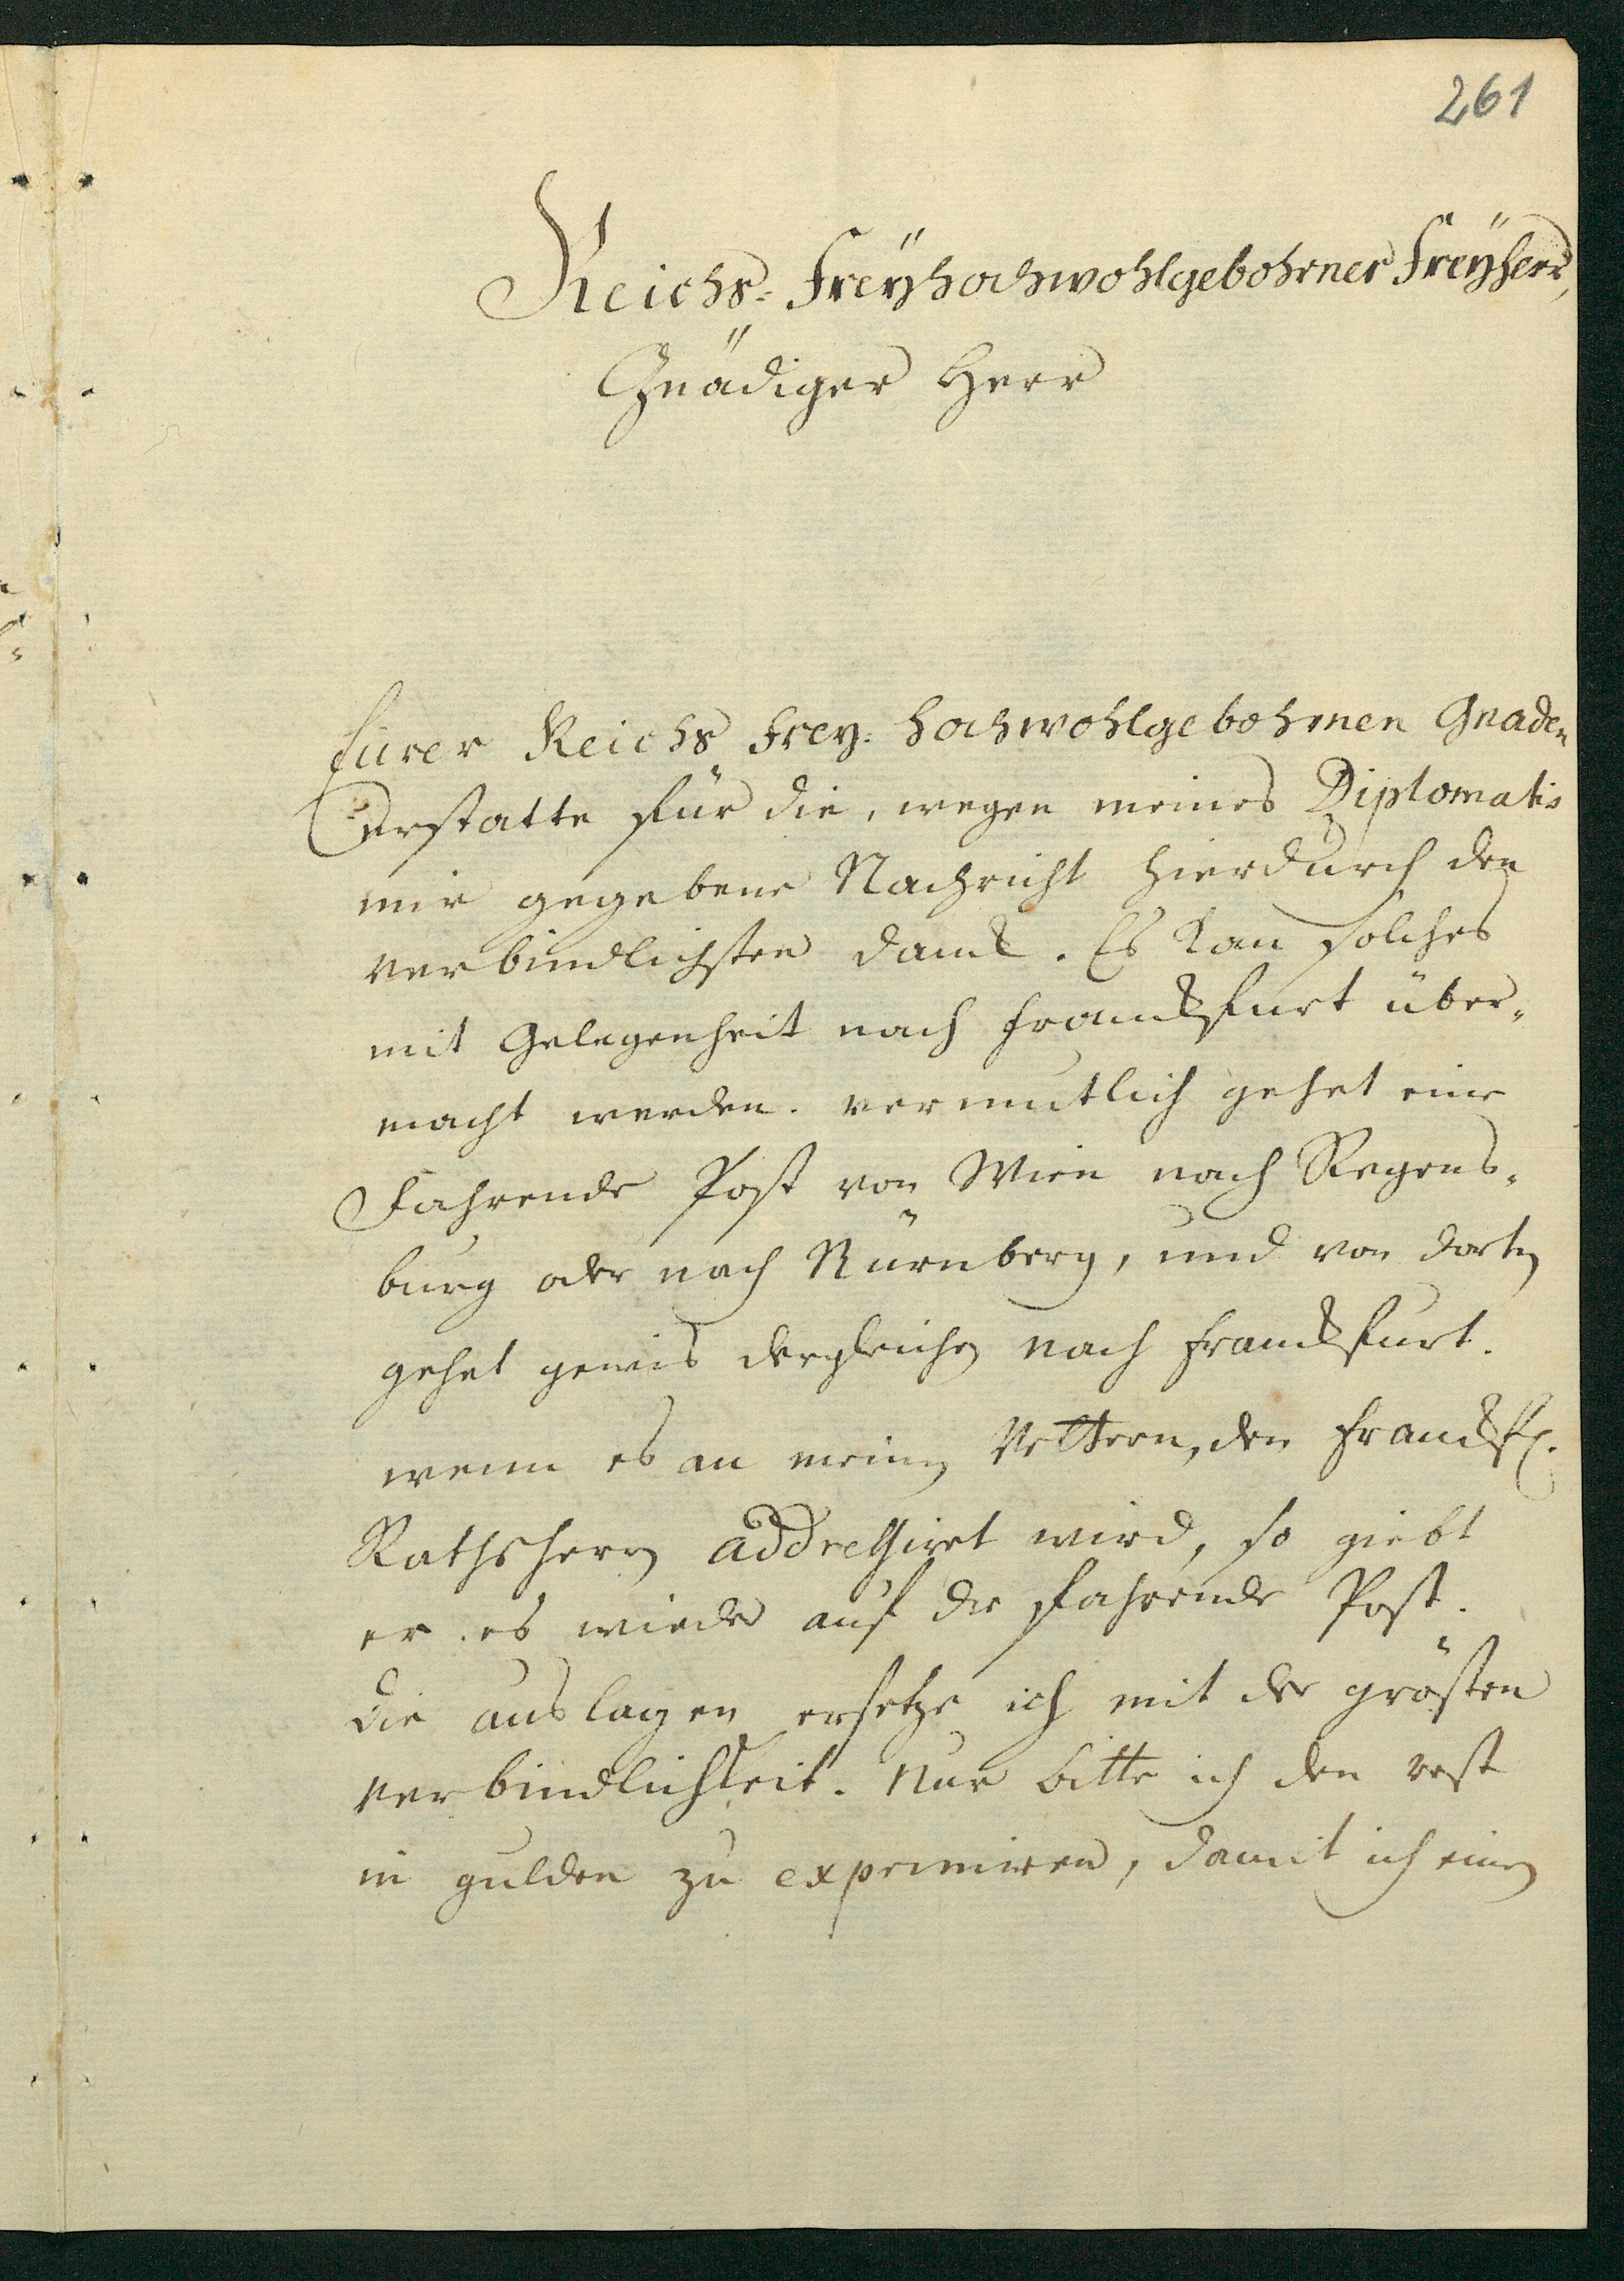 261
Reichs-Freyhochwohlgebohrner Freyherr,
Gnädiger Herr
Eurer Reichs Frey-hochwohlgebohrnen Gnaden
Erstatte für die, wegen meines Diplomatis
mir gegebene Nachricht hierdurch den
verbindlichsten danck. Es kan solches
mit Gelegenheit nach Franckfurt über-
macht werden. vermutlich gehet eine
Fahrende Post von Wien nach Regens-
burg oder nach Nürnberg, und von dorten
gehet gewis dergleichen nach Franckfurt.
wenn es an meinen Vettern, den Franckf.
Rathsherrn addressiret wird, so giebt
er es wieder auf die fahrende Post.
die auslagen ersetze ich mit der grösten
verbindlichkeit. Nur bitte ich den rest
in gulden zu exprimiren, damit ich einen